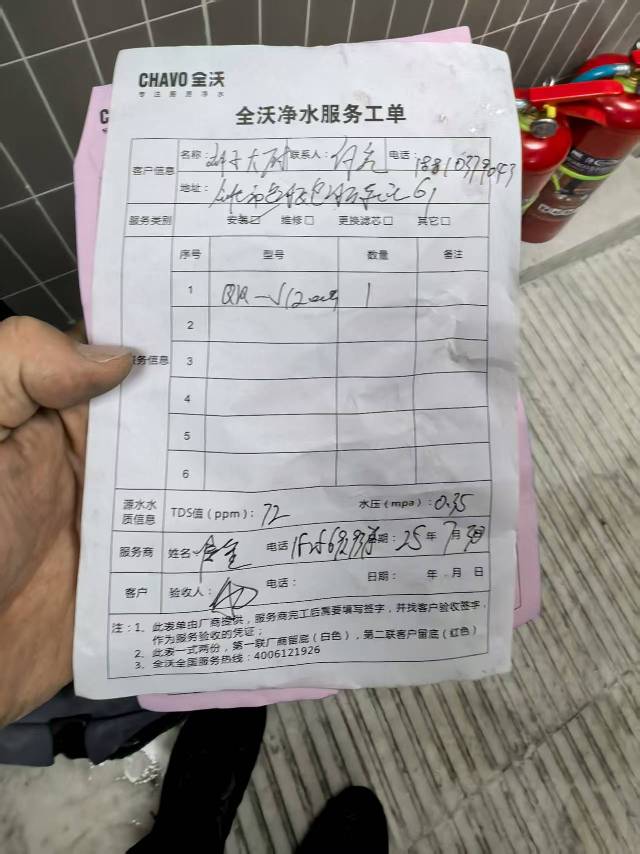 CHAVO 全沃
专注厨房净水
全沃净水服务工单
客户信息 名称： 联系人： 电话：
地址：
服务类别 安装☑ 维修□ 更换滤芯□ 其它□
服务信息 序号 型号 数量 备注
1 1
2
3
4
5
6
源水水质信息 TDS值（ppm）：72 水压（mpa）：0.35
服务商 姓名： 电话 日期：25年7月
客户 验收人： 电话： 日期： 年 月 日
注：1、此表单由厂商提供，服务商完工后需要填写签字，并找客户验收签字，
作为服务验收的凭证；
2、此表一式两份，第一联厂商留底（白色），第二联客户留底（红色）
3、全沃全国服务热线：4006121926